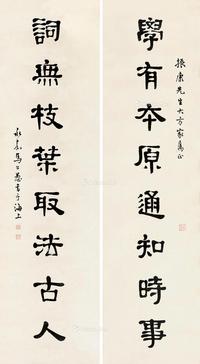 振康先生大方家属正
學有本原通知時事
詞無枝葉取法古人
永嘉馬公愚書于海上